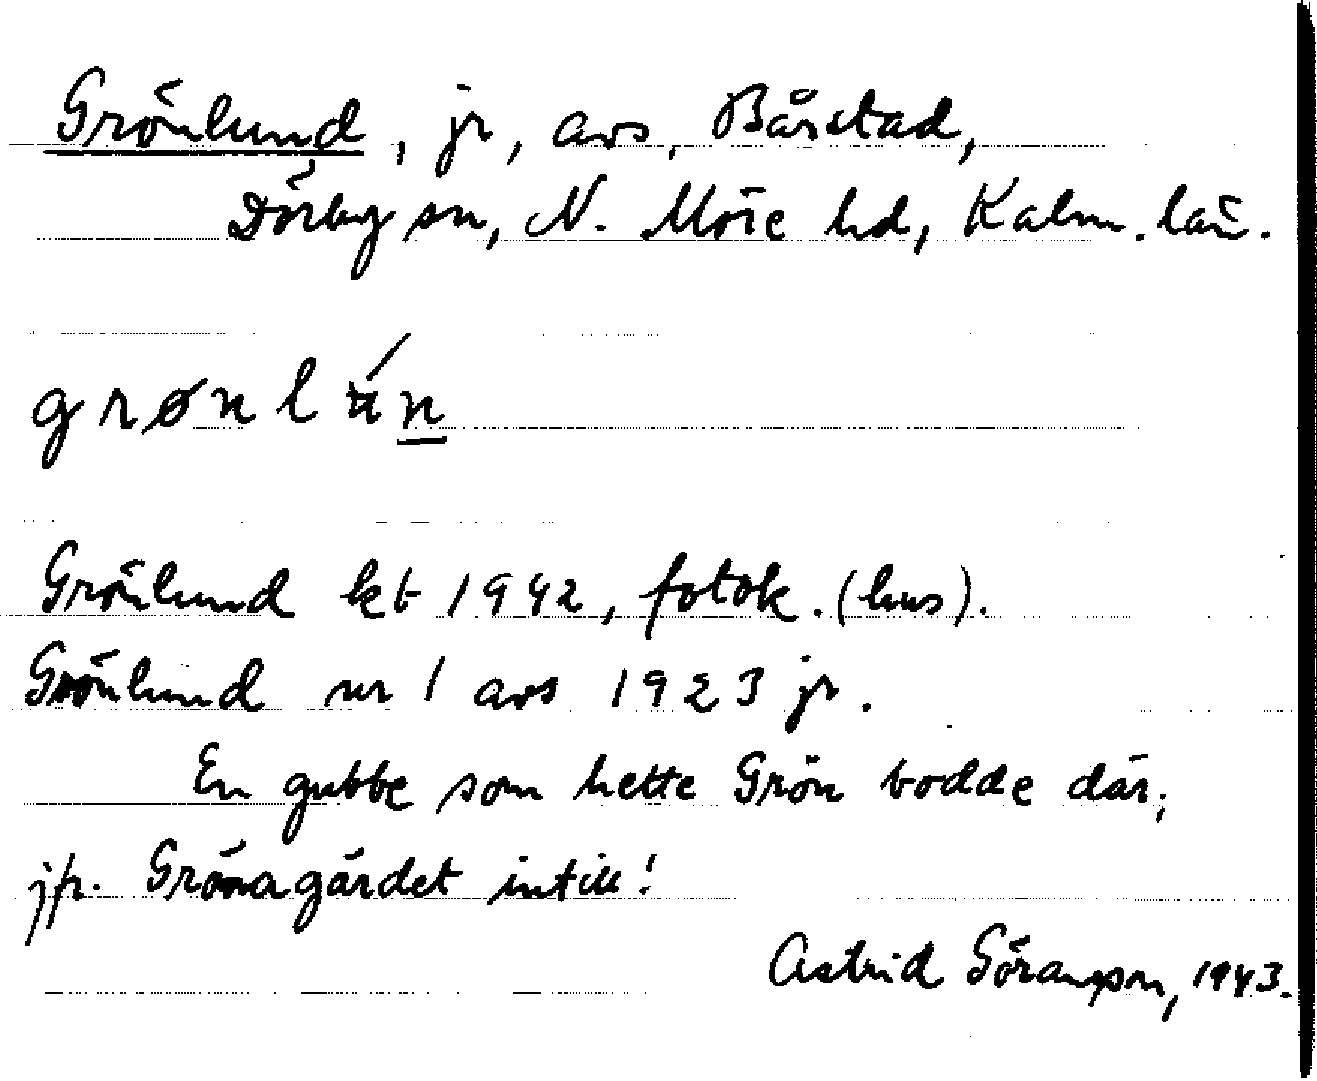 Grönlund, jr, avs. Bårstad,
Dörby sn, N. Möre hd, Kalm. län.
grønlʉ́n
Grönlund kt 1942, fotok. (hus).
Grönlund nr 1 avs 1923 jr.
En gubbe som hette Grön bodde där;
jfr. Grönagärdet intill!
Astrid Göransson, 1943.